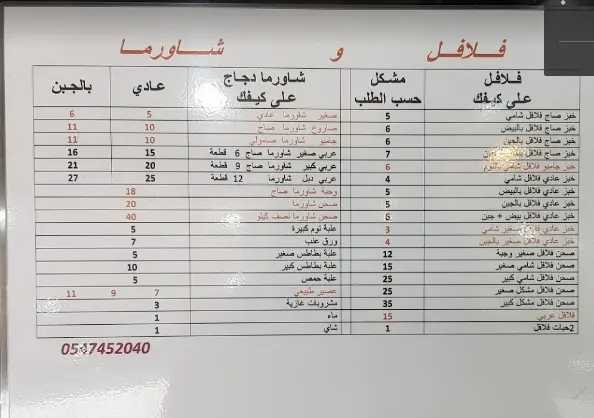 فلافل و شاورما
فلافل على كيفك	مشكل حسب الطلب	شاورما دجاج على كيفك	عادي	بالجبن
خبز صاج فلافل شامي	5	صغير شاورما عادي	5	6
خبز صاج فلافل بالبيض	6	صاروخ شاورما صاج	10	11
خبز صاج فلافل بالجبن	6	جامبو شاورما صامولي	10	11
خبز صاج فلافل	7	عربي صغير شاورما صاج 6 قطعة	15	16
خبز جامبو فلافل شامي بالتوم	6	عربي كبير شاورما صاج 9 قطعة	20	21
خبز عادي فلافل شامي	4	عربي دبل شاورما 12 قطعة	25	27
خبز عادي فلافل بالبيض	5	وجبة شاورما صاج	18
خبز عادي فلافل بالجبن	5	صحن شاورما	20
خبز عادي فلافل بيض + جبن	6	صحن شاورما نصف كيلو	40
خبز عادي فلافل صغير شامي	3	علبة توم كبيرة	5
خبز عادي فلافل صغير بالجبن	4	ورق عنب	7
صحن فلافل صغير وجبة	12	علبة بطاطس صغير	5
صحن فلافل شامي صغير	15	علبة بطاطس كبير	10
صحن فلافل شامي كبير	25	علبة حمص	5
صحن فلافل مشكل صغير	25	عصير طبيعي	7	9	11
صحن فلافل مشكل كبير	35	مشروبات غازية	3
فلافل عربي	15	ماء	1
2حبات فلافل	1	شاي	1
0547452040